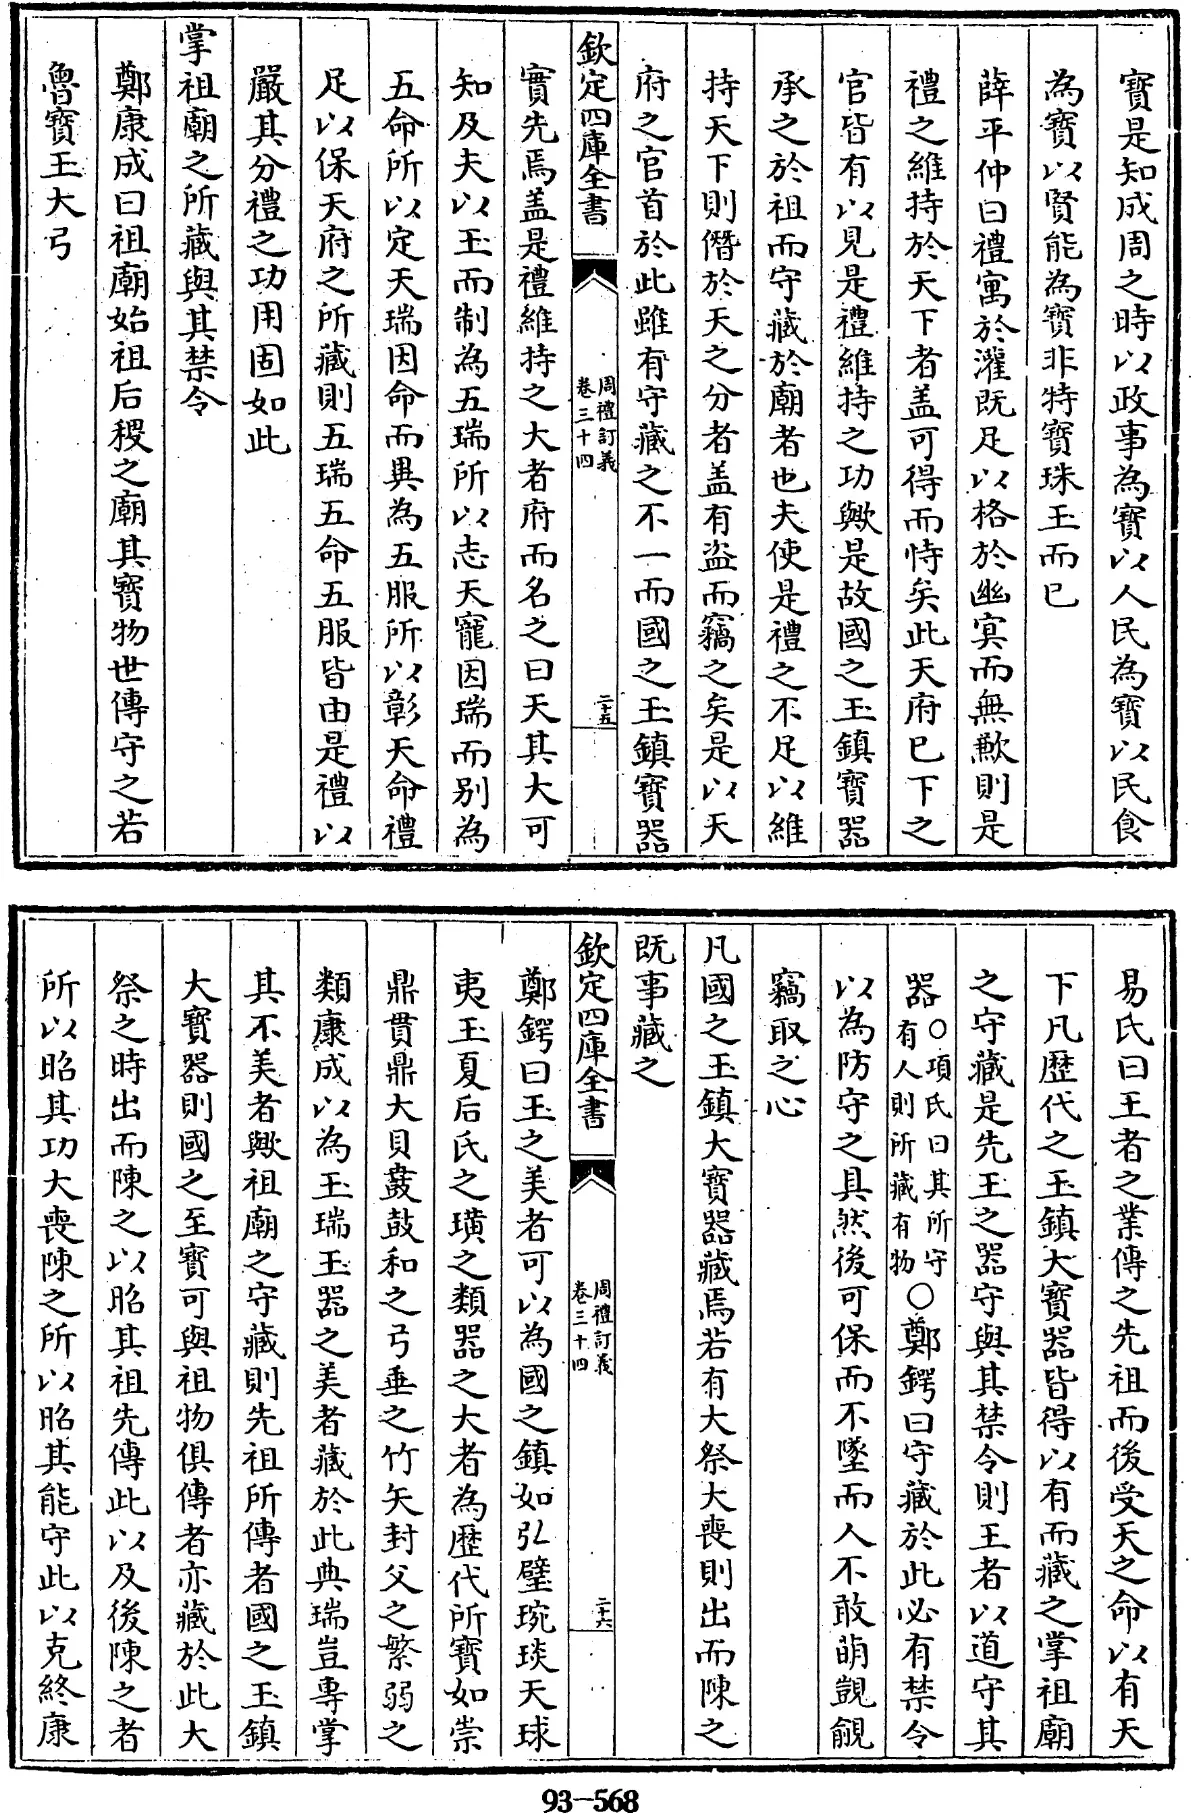 寳是知成周之時以政事為寳以人民為寳以民食
為寳以賢能為寳非特寳珠玉而已
薛平仲曰禮寓於灌既足以格於幽冥而無歉則是
禮之維持於天下者盖可得而恃矣此天府已下之
官皆有以見是禮維持之功歟是故國之玉鎮寳器
承之於祖而守藏於廟者也夫使是禮之不足以維
持天下則僭於天之分者盖有盜而竊之矣是以天
府之官首於此雖有守藏之不一而國之玉鎮寳器
欽定四庫全書
周禮訂義
卷三十四
二十五
實先焉盖是禮維持之大者府而名之曰天其大可
知及夫以玉而制為五瑞所以志天寵因瑞而别為
五命所以定天瑞因命而異為五服所以彰天命禮
足以保天府之所藏則五瑞五命五服皆由是禮以
嚴其分禮之功用固如此
掌祖廟之所藏與其禁令
鄭康成曰祖廟始祖后稷之廟其寳物世傳守之若
魯寳玉大弓
易氏曰王者之業傳之先祖而後受天之命以有天
下凡歴代之玉鎮大寳器皆得以有而藏之掌祖廟
之守藏是先王之器守與其禁令則王者以道守其
器○項氏曰其所守
有人則所藏有物○鄭鍔曰守藏於此必有禁令
以為防守之具然後可保而不墜而人不敢萌覬覦
竊取之心
凡國之玉鎮大寳器藏焉若有大祭大喪則出而陳之
既事藏之
欽定四庫全書
周禮訂義
卷三十四
二十六
鄭鍔曰玉之美者可以為國之鎮如弘璧琬琰天球
夷玉夏后氏之璜之類器之大者為歴代所寳如崇
鼎貫鼎大貝鼖鼓和之弓垂之竹矢封父之繁弱之
類康成以為玉瑞玉器之美者藏於此典瑞豈專掌
其不美者歟祖廟之守藏則先祖所傳者國之玉鎮
大寳器則國之至寳可與祖物俱傳者亦藏於此大
祭之時出而陳之以昭其祖先傳此以及後陳之者
所以昭其功大喪陳之所以昭其能守此以克終康
93-568